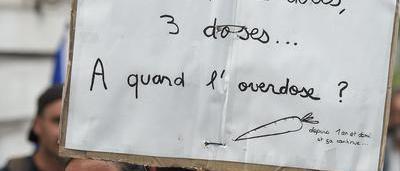 doses,
3 doses...
A quand l'overdose ?
depuis 1 an et demi
et ça continue...